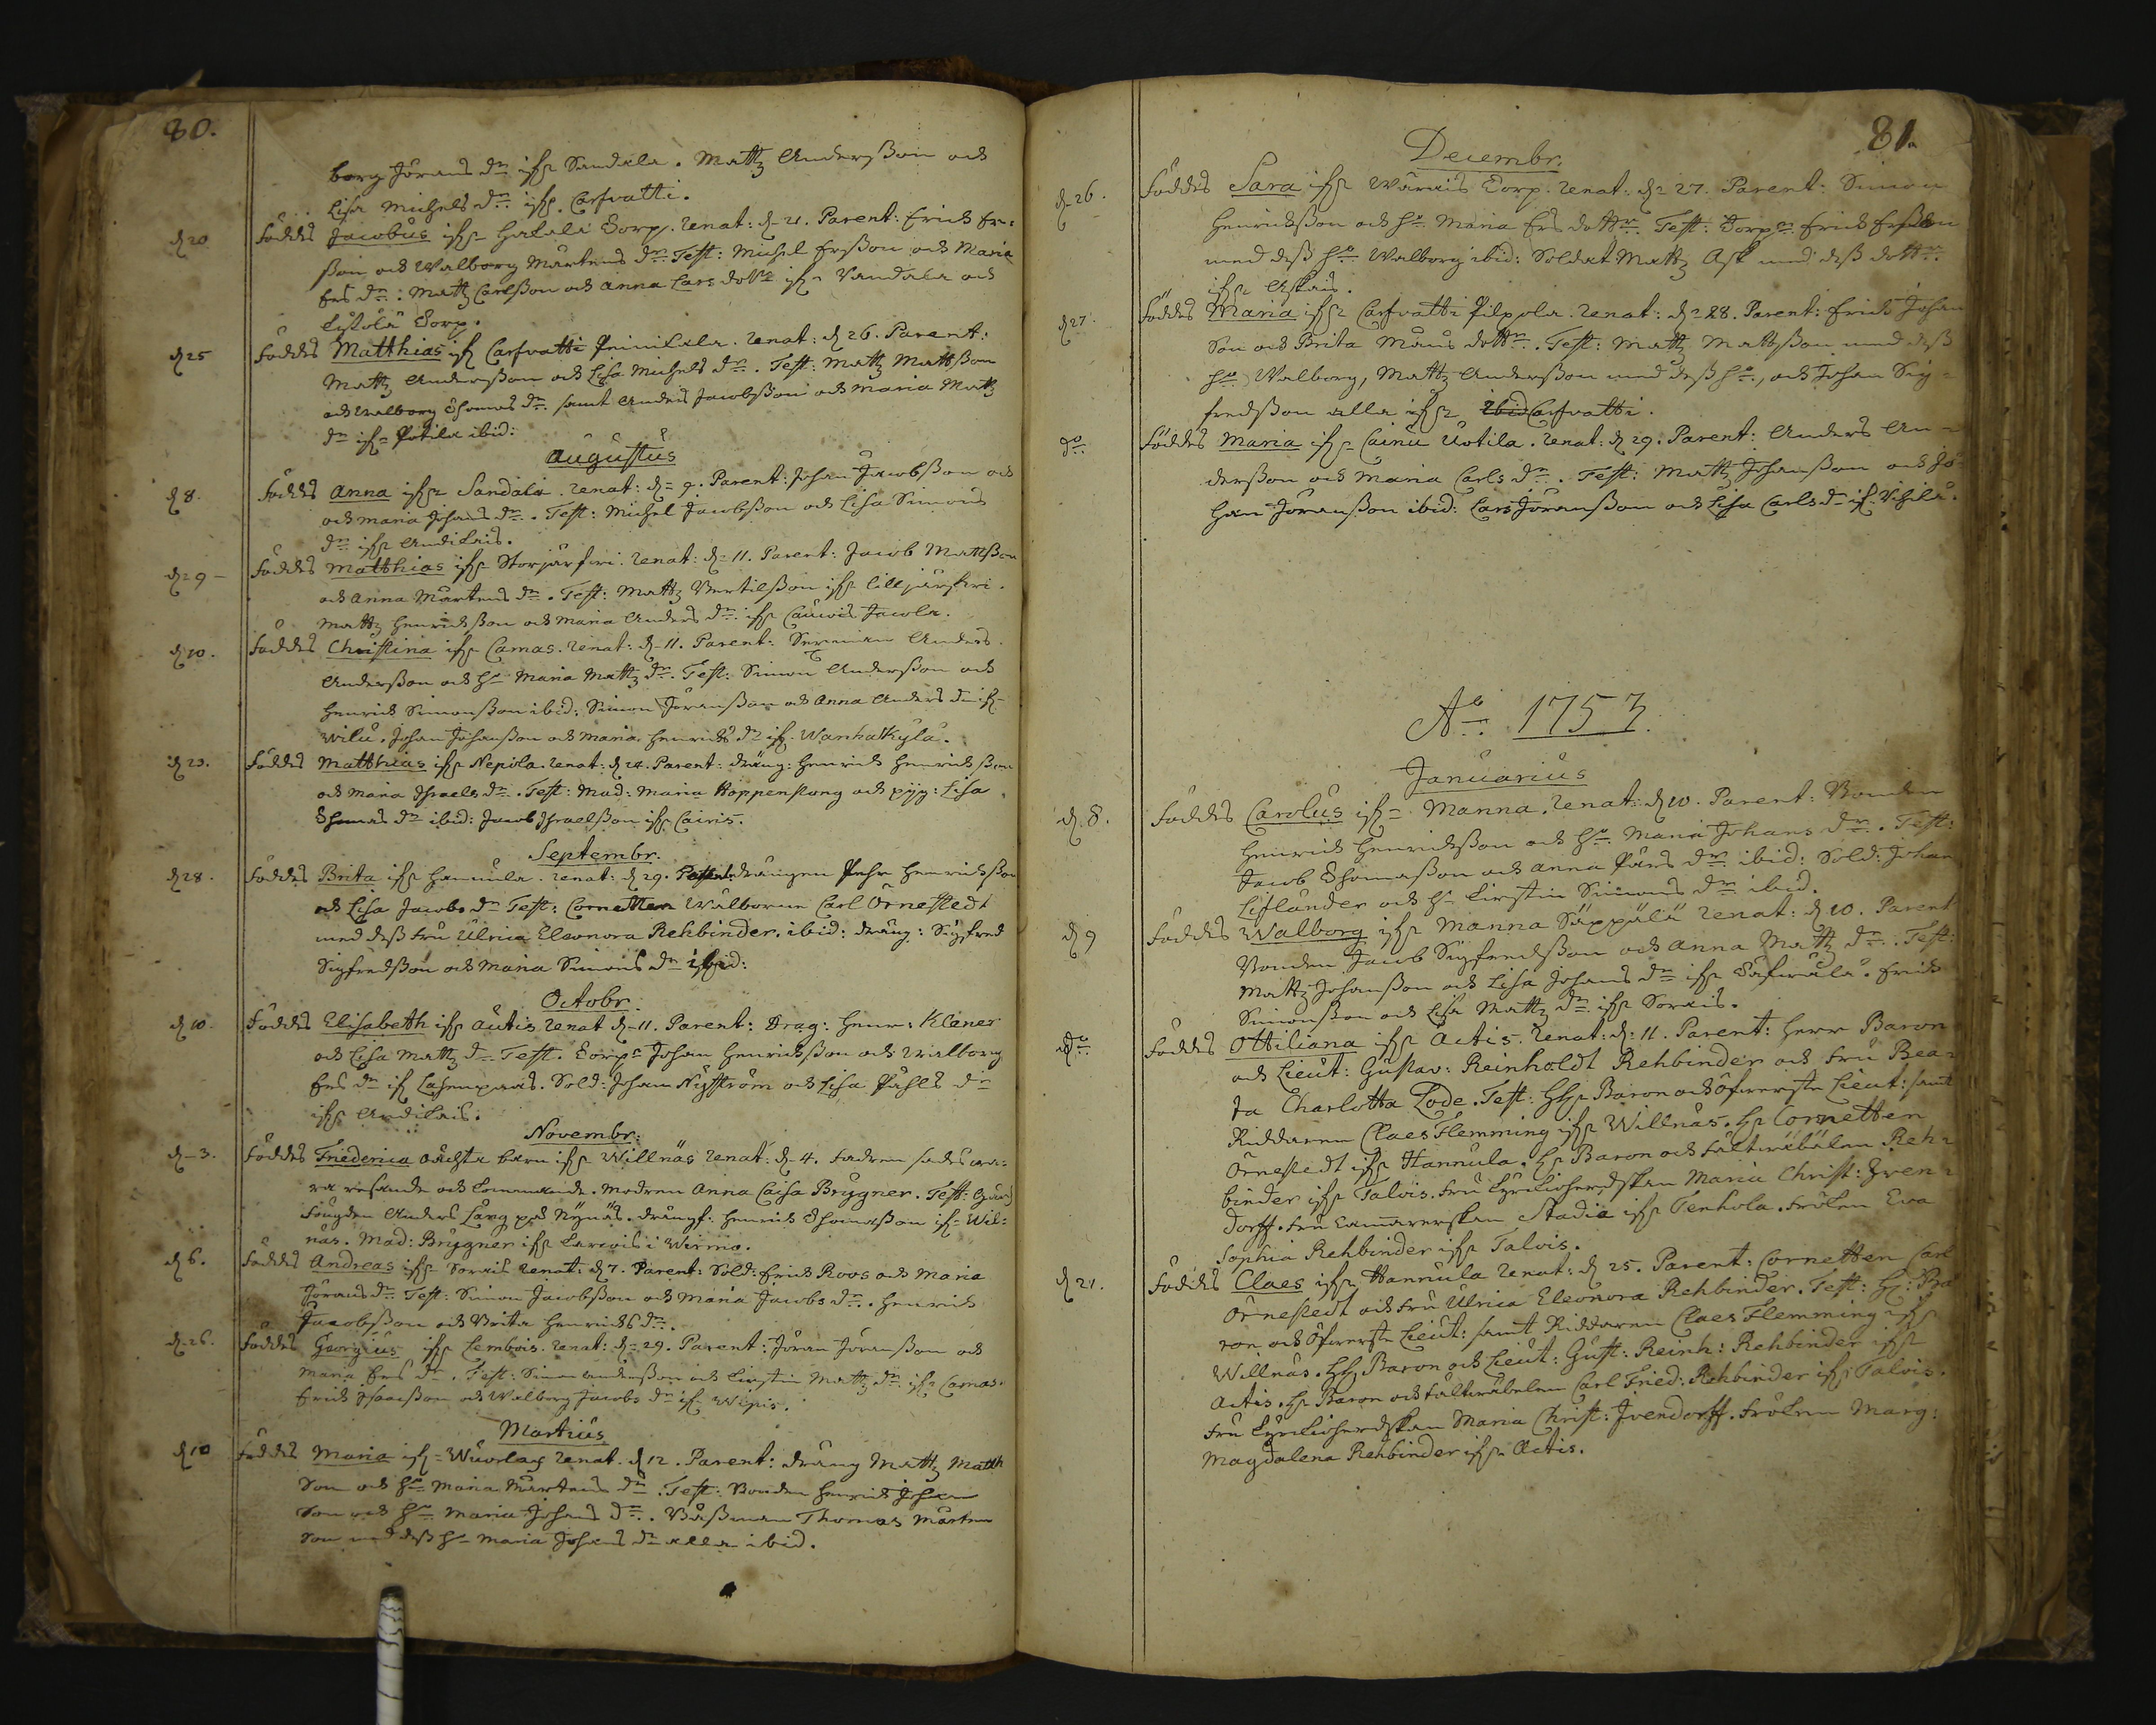 80.
borg Jörans dr ifr Sandala. Mattz Andersson och
Lisa Michels dr ifr. Carfvatti.
d 20 Föddes Jacobus ifr Hakala Torp. Renat: d. 21. Parent: Erich Er-
sson och Walborg Mårtens dr. Test: Michel Ersson och Maria
Ers dr: Mattz Carlsson och Anna Lars dotter ifr Vandala och
Torp.
d 25 Föddes Matthias ifr Carfvatti Peinikala. Renat: d 26. Parent:
Mattz Andersson och Lisa Michels dr. Test: Mattz Mattsson
och Walborg Thomas dr. samt Anders Jacobsson och Maria Mattz
dr ifr Potila ibid:
Augustus
d 8. Föddes Anna ifr Sandala. Renat: d. 9. Parent: Johan Jacobsson och
och Maria Johans dr. Test: Michel Jacobsson och Lisa Simons
dr ifr Andikais.
d. 9 Föddes Matthias ifr Storjärfvi. Renat: d. 11. Parent: Jacob Mattsson
och Anna Mårtens dr. Test: Mattz Bertilsson ifr Lilljärfvi.
Mattz Henrichsson och Maria Anders dr. ifr Cauvois Jacola.
d 10. Föddes Christina ifr Camas. Renat: d. 11. Parent: Anders
Andersson och h. Maria Mattz dr. Test: Simon Andersson och
Henrich Simonsson ibid: Simon Jöransson och Anna Anders dr ifr
Wilu. Johan Johansson och Maria Henrichs dr ifr. Wanhakylä.
d 23. Föddes Matthias ifr Nepola. Renat: d 24. Parent: dräng: Henrich Henrichsson
och Maria Israels dr. Test: Mad: Maria Koppenstang och pig: Lisa
Thomas dr ibid: Jacob Israelsson ifr Cairis.
Septembr.
d 28. Föddes Brita ifr Hannula. Renat: d 29. Parent: drängen Pehr Henrichsson
och Lisa Jacobs dr Test: Cornetten Wälborne Carl Örnestedt
med dess Fru Ulrica Eleonora Rehbinder. ibid: dräng: Sigfred
Sigfredsson och Maria Simons dr ibid:
Octobr.
d 10. Föddes Elisabeth ifr Autis. Renat d. 11. Parent: Drag: Henr: Klaner
och Lisa Mattz dr. Test. Torpr Johan Henrichsson och Walborg
Ers dr ifr Lahenpää. Sold: Johan Nyström och Lisa Påhls dr
ifr Andikais.
Novembr:
d. 3. Föddes Friederica oächta barn ifr Willnäs Renat: d. 4. Fadren sades wa-
ra resande och . Modren Anna Caisa Brygner. Test: Gårds
fougden Anders Lång på Nynäs. drängf: Henrich Thomasson ifr Wil-
näs. Mad: Brygner ifr i Wirmo.
d 6. Föddes Andreas ifr Sorais Renat: d 7. Parent: Sold: Erich Roos och Maria
Jörans dr. Test: Simon Jacobsson och Maria Jacobs dr. Henrich
Jacobsson och Brita Henrichs dr.
d. 26. Föddes Georgius ifr Lembois. Renat: d. 29. Parent: Jöran Jöransson och
Maria Ers dr. Test: Simon Andersson och Kirstin Mattz dr ifr Camas.
Erich Isaacsson och Walborg Jacobs dr ifr Wipis.
Martius
d 10 Föddes Maria ifr Wuorlax Renat. d 12. Parent: dräng Mattz Matth
son och ho Maria Mårtens dr. Test: Bonden Henrich Johan
son och ho Maria Johans dr. Båssman Thomas Mårten
son med dess h. Maria Johans dr alla ibid.
81.
Decembr.
d. 26. Föddes Sara ifr Wärais Torp. Renat: d. 27. Parent: Simon
Henrichsson och ho. Maria Ers dotter. Test: Torpr Erich Ersson
med dess ho. Walborg ibid: Soldat Mattz Ask med dess dotter
ifr Askais.
d 27. Föddes Maria ifr Carfvatti Pilpola. Renat: d. 28. Parent: Erich Johan
son och Brita Måns dotter. Test: Mattz Mattsson med dess
ho. Walborg, Mattz Andersson med dess ho., och Johan Sig-
fredsson alla ifr Ibid Carfvatti.
do Föddes Maria ifr Cainu Uotila. Renat: d 29. Parent: Anders An-
dersson och Maria Carls dr. Test: Mattz Johansson och Jo-
han Jöransson ibid: Lars Jöransson och Lisa Carls dr ifr Vihilä.
Ao 1753.
Januarius
d. 8. Föddes Carolus ifr Manna. Renat: d 10. Parent: Bonden
Henrich Henrichsson och ho Maria Johans dr. Test:
Jacob Thomasson och Anna Pärs dr ibid: Sold: Johan
Lifländer och h. Kirstin Simons dr ibid.
d 9 Föddes Walborg ifr Manna Säppälä Renat: d 10. Parent
Bonden Jacob Sigfredsson och Anna Mattz dr. Test:
Mattz Johansson och Lisa Johans dr ifr . Erich
Simonsson och Lisa Mattz dr ifr Sorais.
do Föddes Ottiliana ifr Actis. Renat: d. 11. Parent: Herr Baron
och Lieut: Gustav: Reinholdt Rehbinder och Fru Bea-
ta Charlotta Lode. Test: HHr Baron och Öfwerste Lieut: samt
Riddaren Claes Flemming ifr Willnäs. Hr Cornetten
Örnestedt ifr Hannula. Hr Baron och Fältwäbelen Reh-
binder ifr Talois. Fru Maria Christ: Iven-
dorff. Fru Camarerskan Stadia ifr Tenhola. Frölen Eva
Sophia Rehbinder ifr Talois.
d 21. Föddes Claes ifr Hannula Renat: d 25. Parent: Cornetten Carl
Örnestedt och Fru Ulrica Eleonora Rehbinder. Test: Hr: Ba
ron och Öfwerste Lieut: samt Riddaren Claes Flemming ifr
Willnäs. HHr Baron och Lieut: Gust: Reinh: Rehbinder ifr
Actis. Hr Baron och Fältwäbelen Carl Fried: Rehbinder ifr Talois.
Fru Maria Christ: Ivendorff. Frölen Marg:
Magdalena Rehbinder ifr Actis.